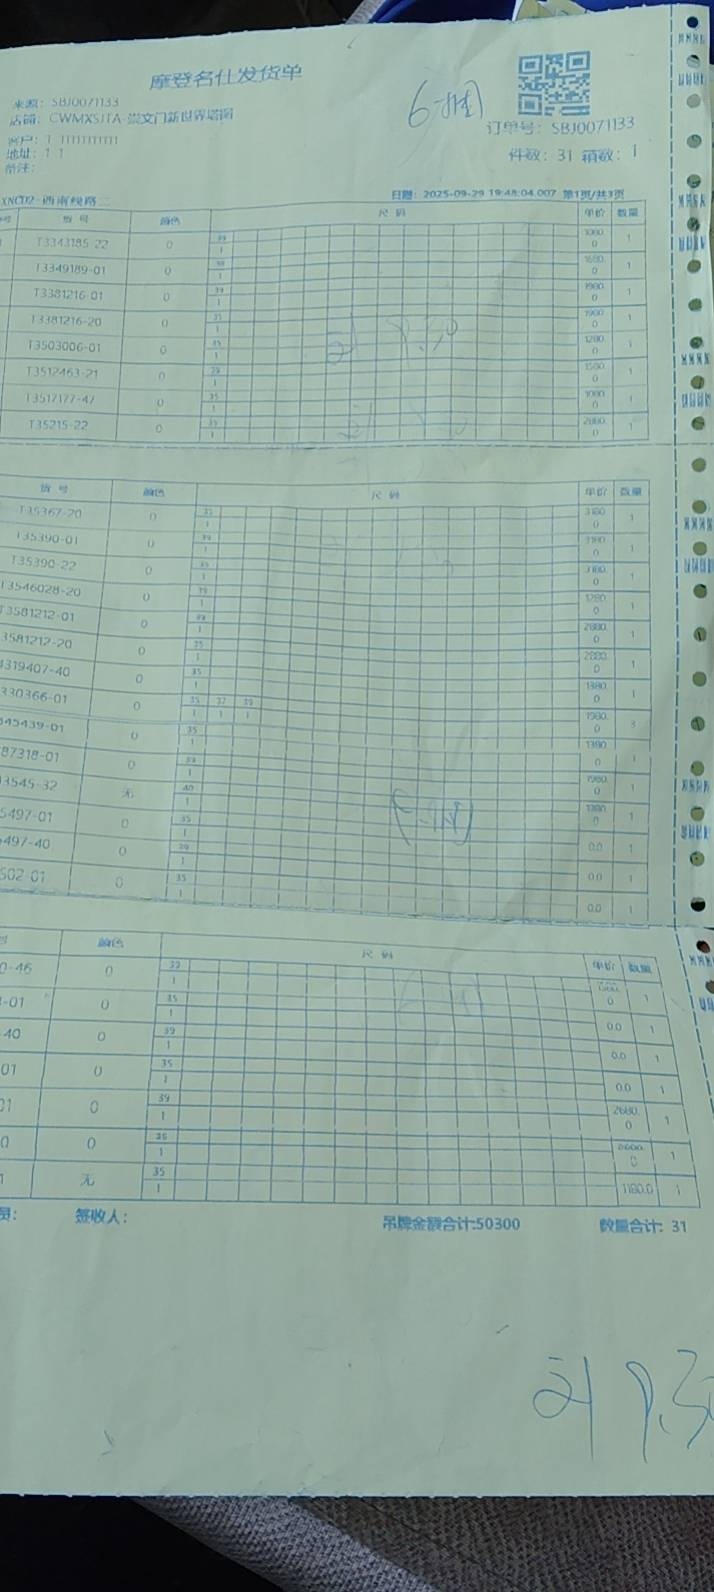 摩登名仕发货单
来源: SBJ0071133
店铺: CWMXSJTA-崇文门新世界塔图
客户: 1 11111111111
地址: 1 1
备注:
6-1
订单号: SBJ0071133
件数: 31 箱数: 1
XNC02-西南线路二
日期: 2025-09-29 19:48:04.007 第1页/共3页
货 号 颜色 尺 码 单价 数量
T3343185-22 0 39 1 1
T3349189-01 0 39 1 1680.0 1
T3381216-01 0 39 1 1980.0 1
T3381216-20 0 35 1 1980.0 1
T3503006-01 0 35 1 1280.0 1
T3512463-21 0 39 1 1580.0 1
T3517177-47 0 35 1 1
T35215-22 0 35 1 2880.0 1
货 号 颜色 尺 码 单价 数量
T35367-20 0 35 1 3180.0 1
T35390-01 0 39 1 3180.0 1
T35390-22 0 35 1 3180.0 1
T3546028-20 0 39 1 1280.0 1
T3581212-01 0 39 1 2880.0 1
3581212-20 0 35 1 2880.0 1
4319407-40 0 35 1 1380.0 1
330366-01 0 35 37 39 1 1 1 1980.0 3
345439-01 0 35 1 1380.0 1
87318-01 0 39 1 1980.0 1
13545-32 无 40 1 1380.0 1
5497-01 0 35 1 0.0 1
497-40 0 39 1 0.0 1
502-01 0 35 1 0.0 1
颜色 尺 码 单价 数量
0-46 0 39 1 1
-01 0 35 1 0.0 1
40 0 39 1 0.0 1
01 0 35 1 0.0 1
01 0 39 1 2680.0 1
0 0 35 1 1
无 35 1 1180.0 1
员:
签收人:
吊牌金额合计:50300
数量合计: 31